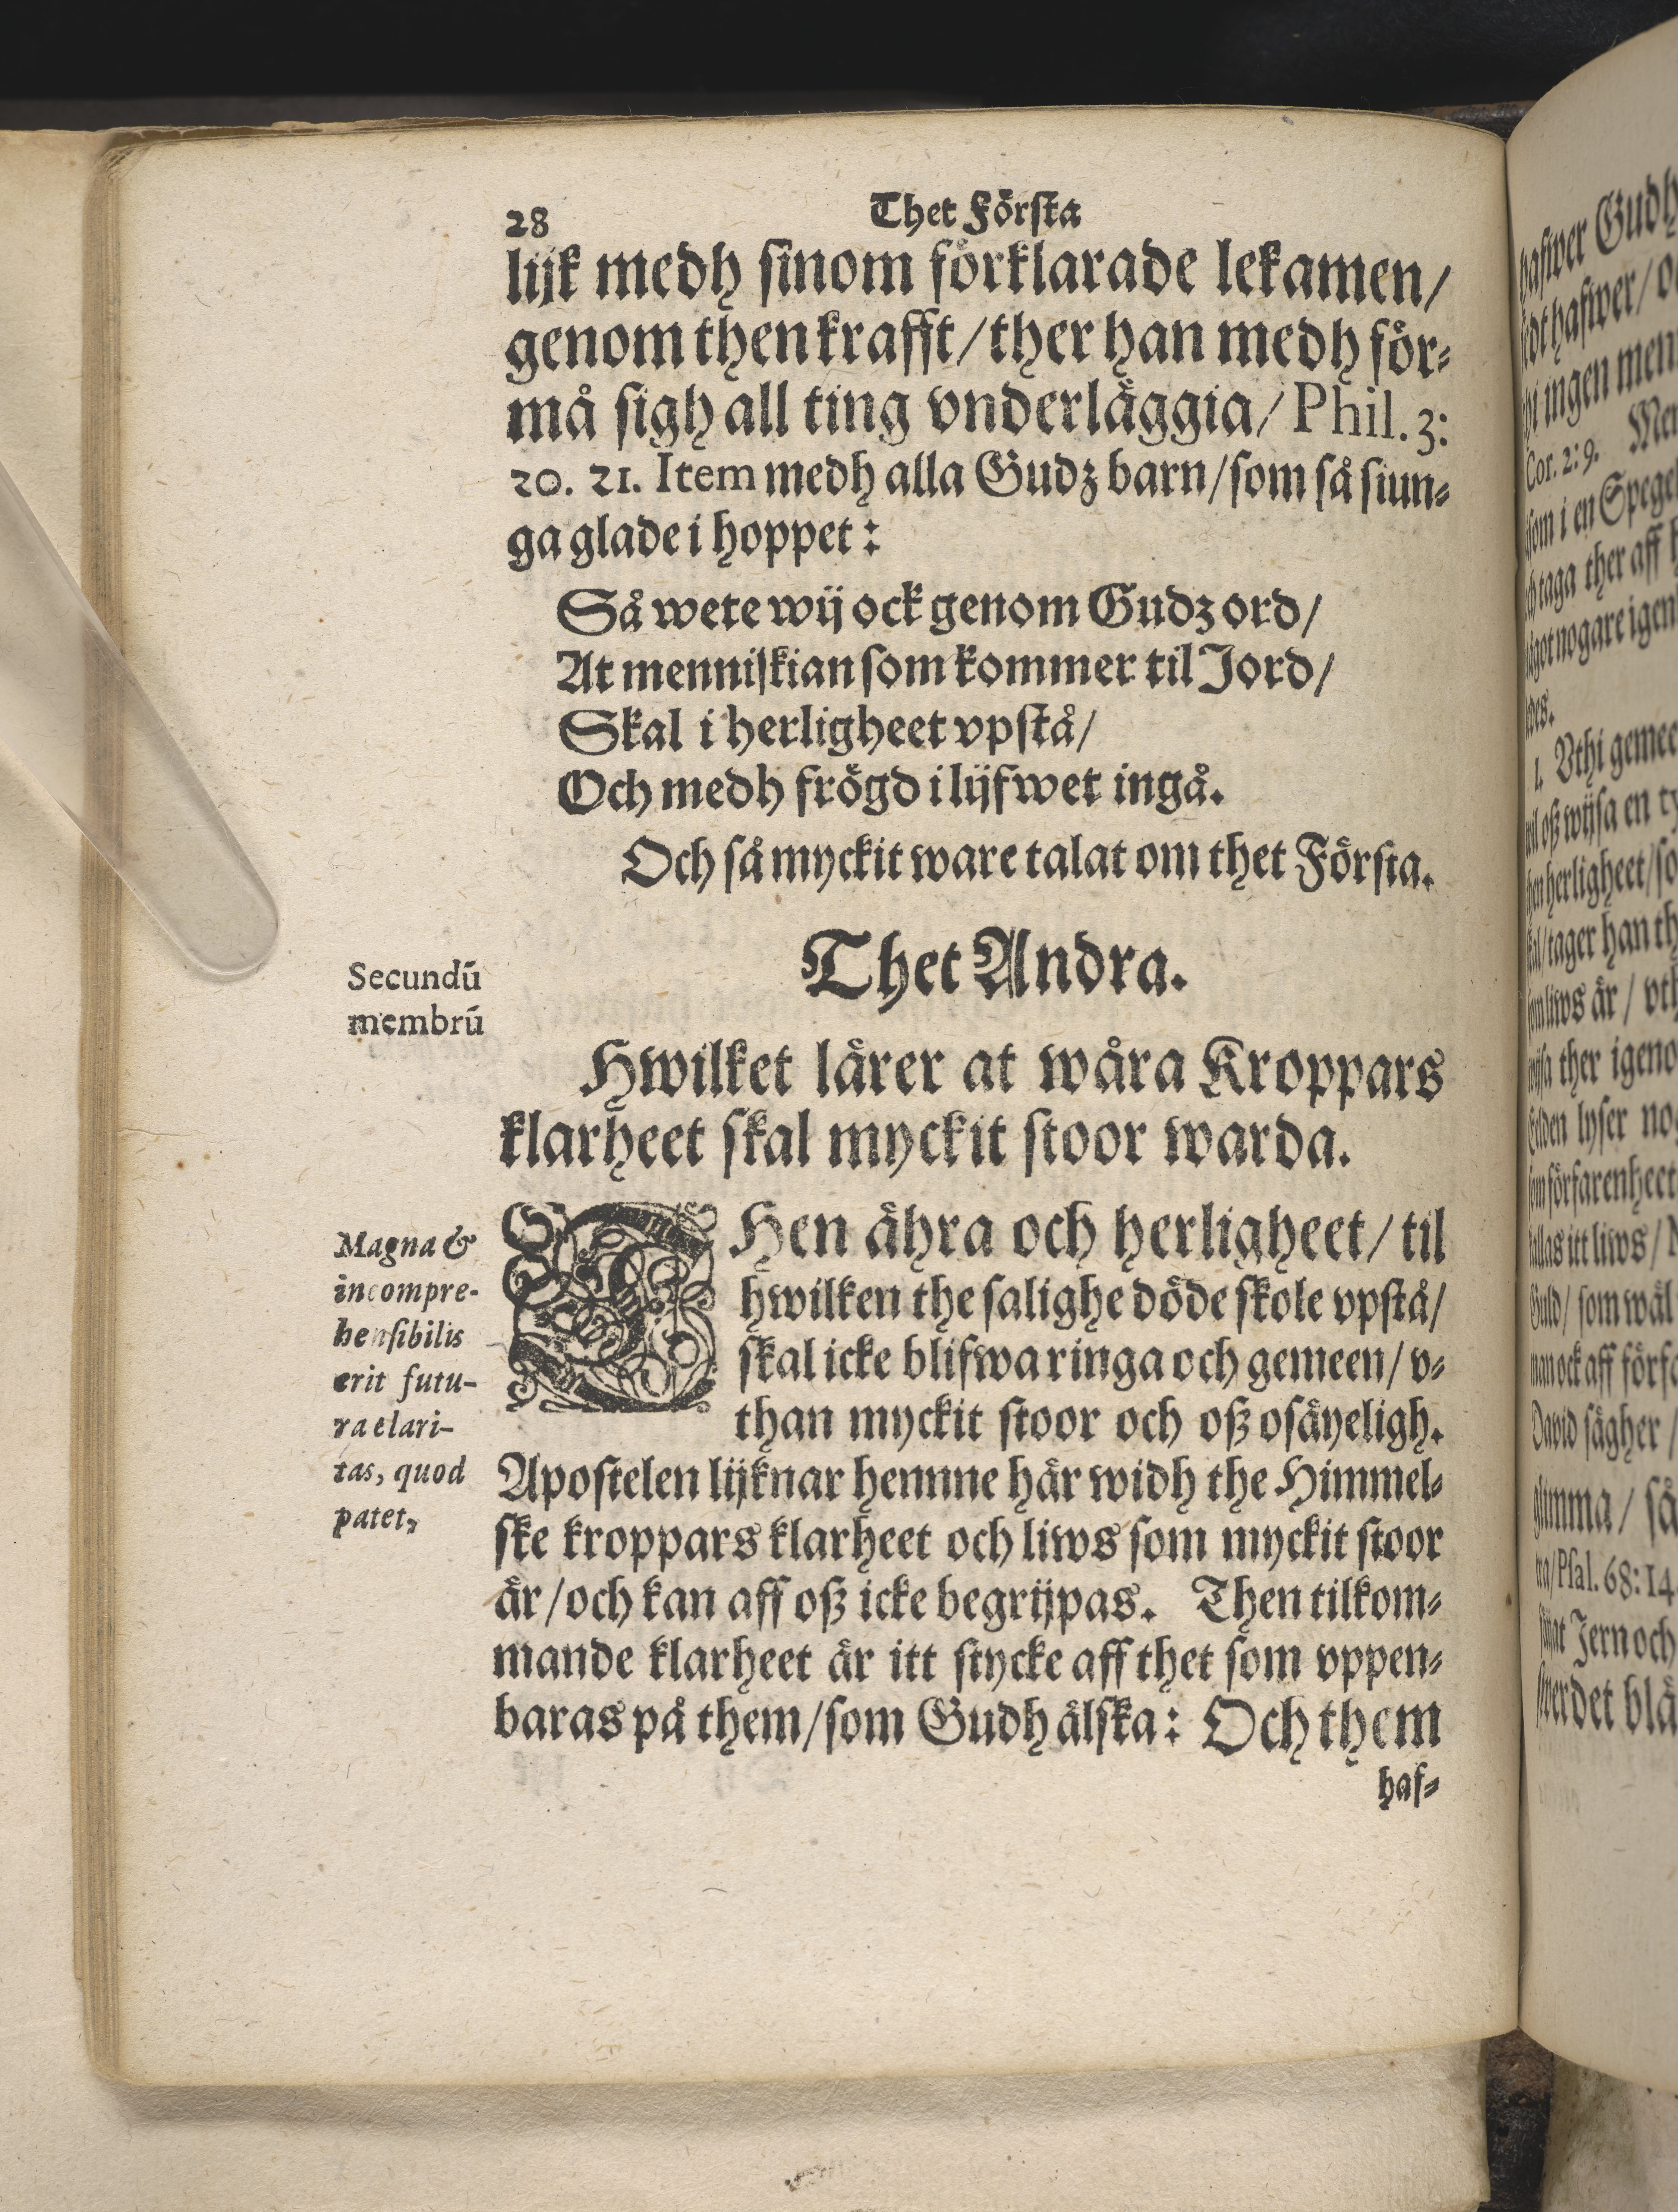 28 Thet Förſta
lijk medh ſinom förklarade lekamen/
genom then krafft/ ther han medh för⸗
må ſigh all ting vnderläggia/ Phil. 3:
20. 21. Item medh alla Gudz barn/ ſom ſå ſiun⸗
ga glade i hoppet:
Så wete wij ock genom Gudz ord/
At menniſkian ſom kommer til Jord/
Skal i herligheet vpſtå/
Och medh frögd i lijfwet ingå.
Och ſå myckit ware talat om thet Förſta.
Secundū
membrū
Thet Andra.
Hwilket lärer at wåra Kroppars
klarheet ſkal myckit ſtoor warda.
Magna &
incompre-
henſibilis
erit futu-
ra clari-
tas, quod
patet,
THen ähra och herligheet/ til
hwilken the ſalighe döde ſkole vpſtå/
ſkal icke blifwa ringa och gemeen/ v⸗
than myckit ſtoor och oß oſäyeligh.
Apoſtelen lijknar hennne här widh the Himmel⸗
ſke kroppars klarheet och liws ſom myckit ſtoor
är/ och kan aff oß icke begrijpas. Then tilkom⸗
mande klarheet är itt ſtycke aff thet ſom vppen⸗
baras på them/ ſom Gudh älſka: Och them
haf⸗
hafwer Gudh
hafwer/
ingen
Cor. 2: 9.
ſom i en
taga ther aff
nogare
1. Vthi
oß wijſa en
herligheet/
tager han
liws är/
ther
lyſer
förfarenheet
itt liws/
ſom wäl
ock aff
David ſägher/
ſå
Pſal. 68: 14
Jern och